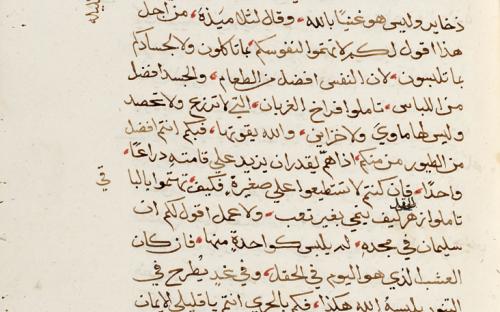 ذخاير وليس هو غنيًا بالله، وقال لتلاميذه، من اجل
هذا اقول لكم لا تهتموا لنفوسكم، بما تاكلون ولا لاجسادكم
بما تلبسون، لان النفس افضل من الطعام، والجسد افضل
من اللباس، تاملوا فراخ الغربان، التي لا تزرع ولا تحصد
وليس لها ماوي ولا خزاين، والله يقوتها، فبكم انتم افضل
من الطيور من منكم، اذا هم يقدر ان يزيد علي قامته دراعًا،
واحدًا، فان كنتم لا تستطيعوا علي صغيرة، فكيف تهتموا بالباقي
الحقل
تاملوا زهر كيف ينمي بغير تعب، ولا عمل اقول لكم ان
سليمان في مجده، لم يلبس كواحدة منها، فان كان
العشب الذي هو اليوم في الحقل، وفي غدٍ يُطرح في
التنور يلبسه الله هكذا، فكم بالحري انتم يا قليلي الايمان